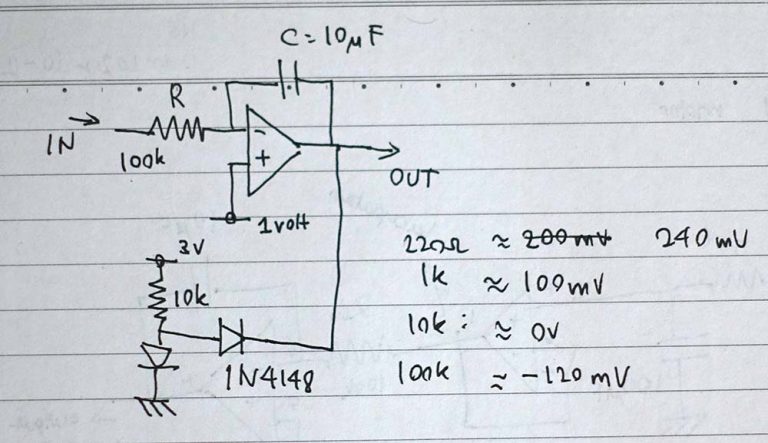 C = 10μF
R
IN
100k
-
+
OUT
1 volt
3V
10k
1N4148
220Ω ≈ 200mV 240mV
1k ≈ 100mV
10k : ≈ 0V
100k ≈ -120mV